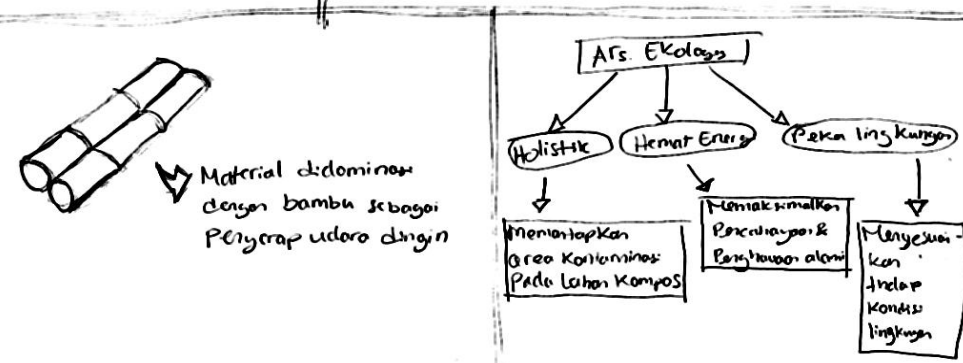 Material didominasi
dengan bambu sebagai
Penyerap udara dingin
Ars. Ekologis
Holistik
Hemat Energi
Peka lingkungan
Memantapkan
area Kontaminasi
Pada Lahan Kompos
Memaksimalkan
Pencahayaan &
Penghawaan alami
Menyesuai-
kan
thdap
Kondisi
lingkungan